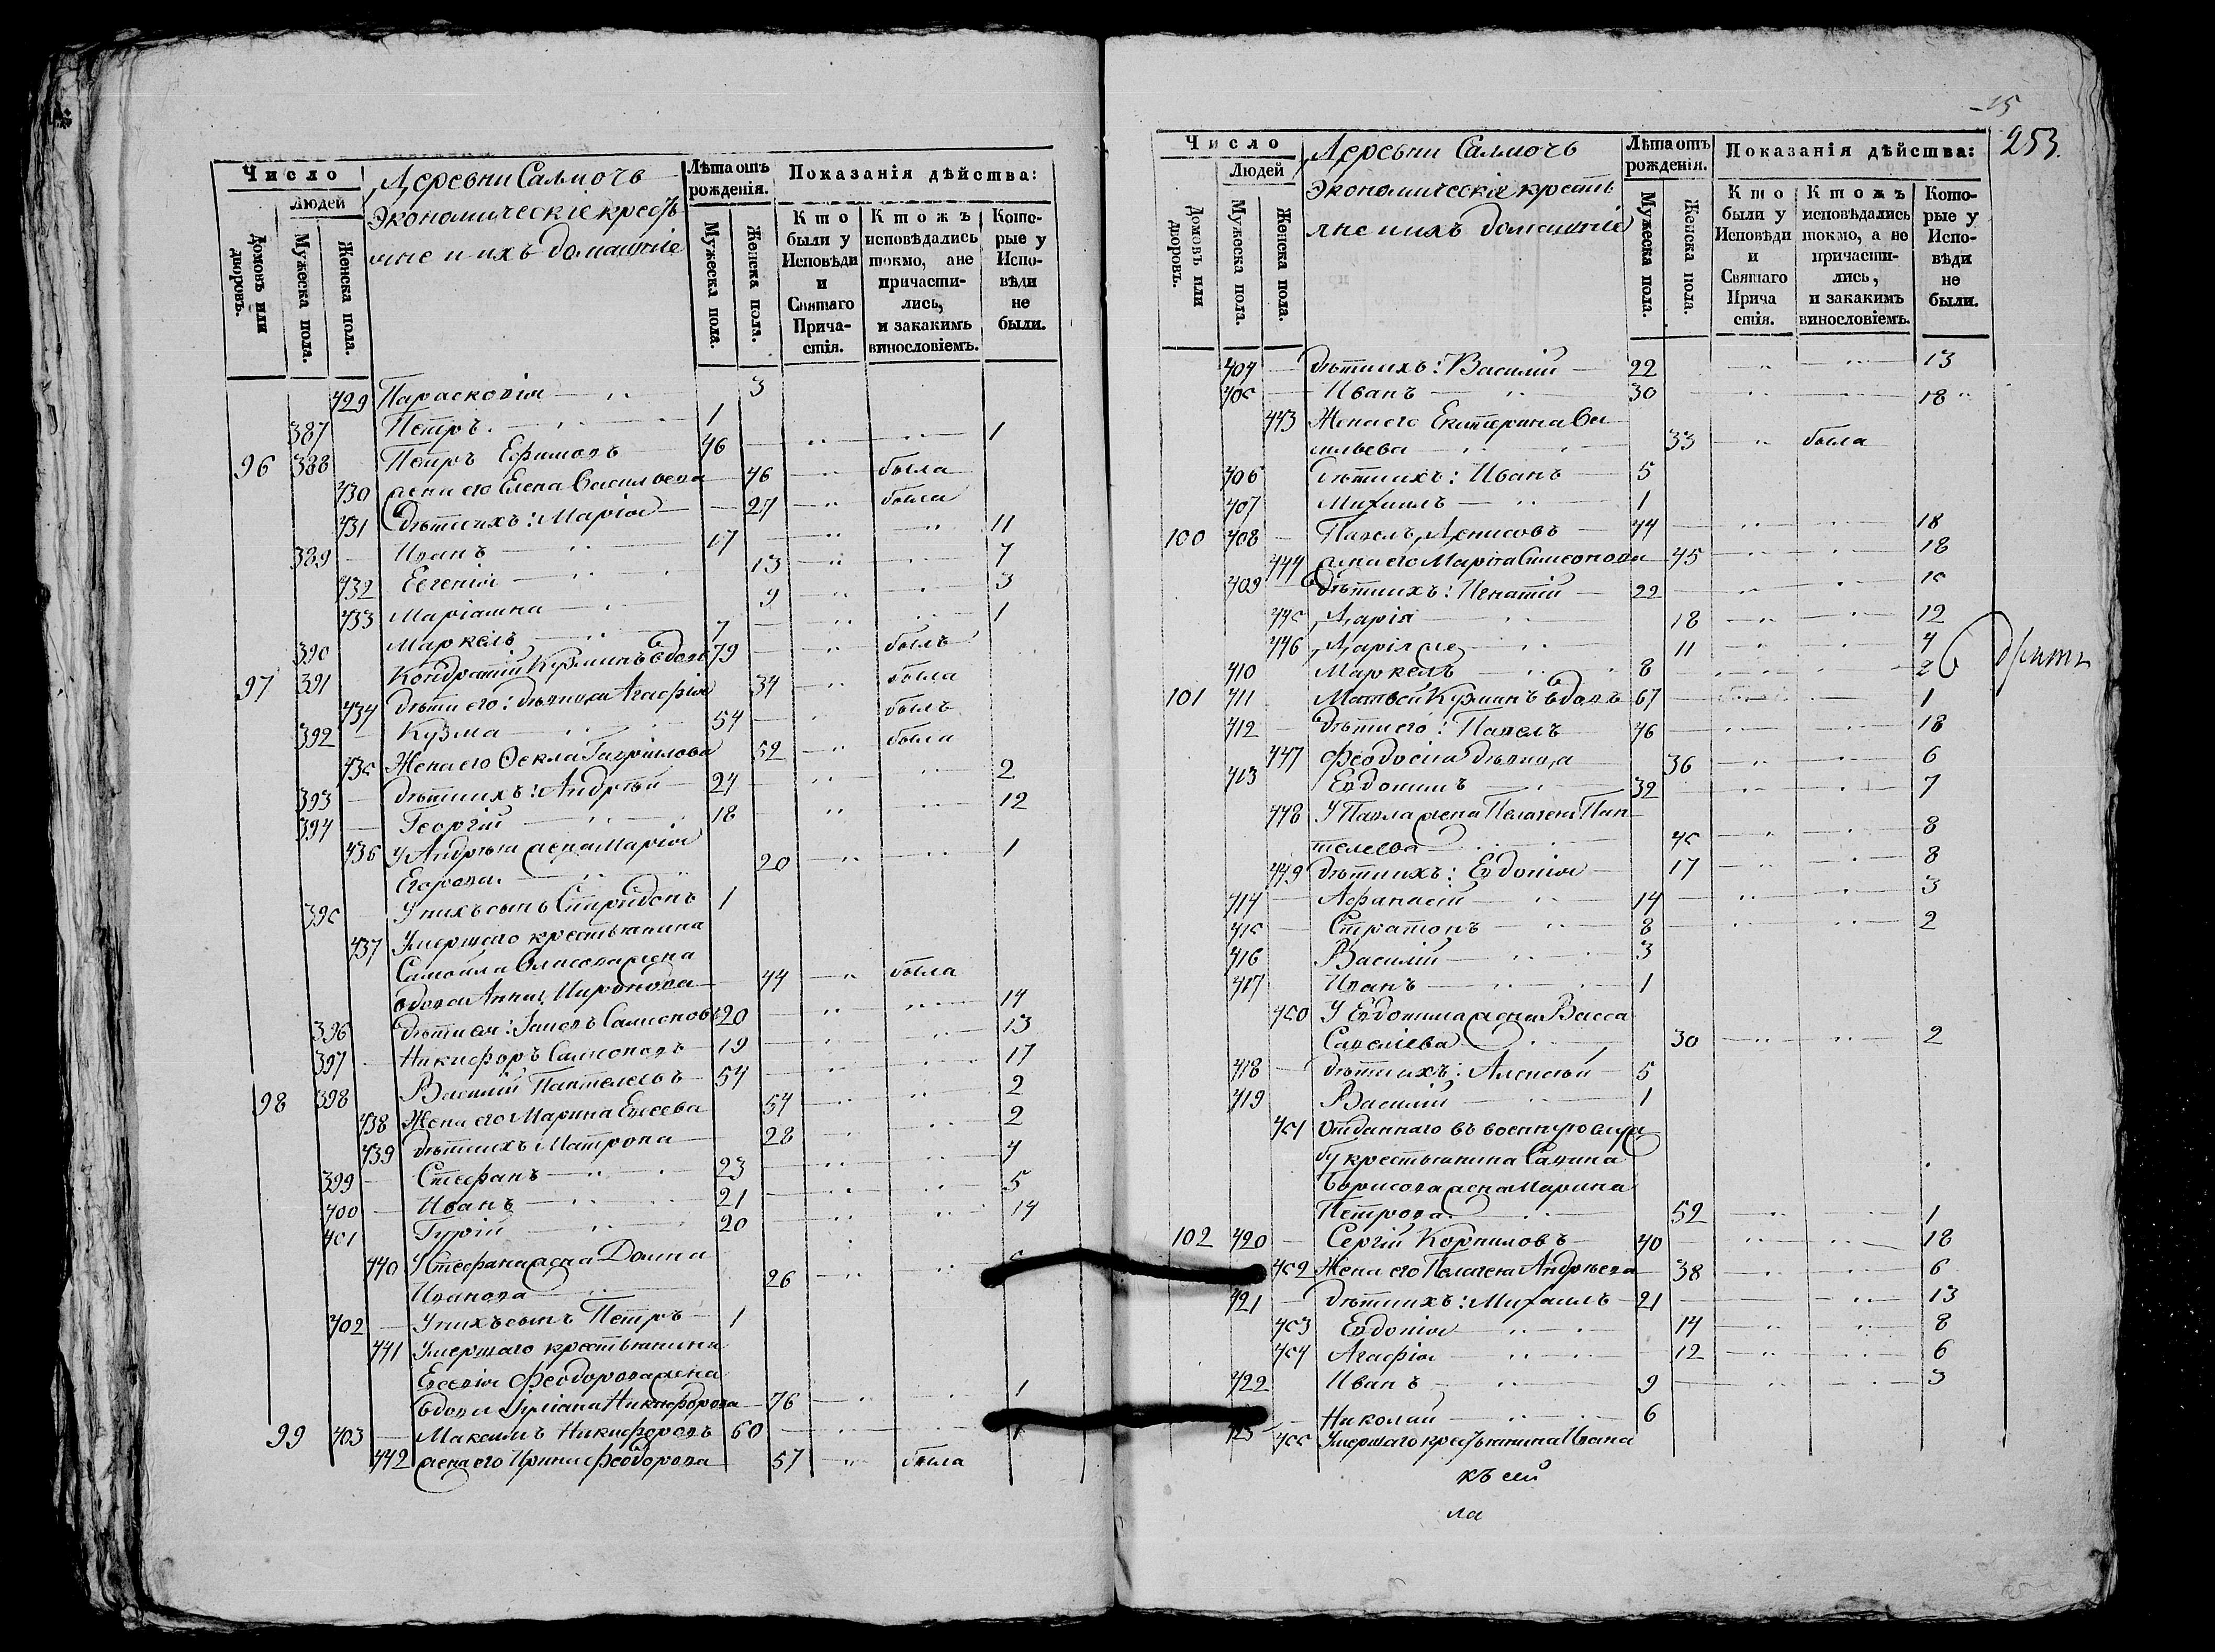 Число
Людей
Домовъ или дворовъ.
Мужеска пола.
Женска пола.
Деревни Салмочь
Экономическiе кресть
яне и ихъ домашнiе
Лѣта отъ рожденiя.
Мужеска пола.
Женска пола.
Показанiя дѣйства:
Кто были у Исповѣди и Святаго Прича-стiя.
Ктожъ исповѣдались токмо, а не причасти-лись, и закакимъ винословiемъ.
Кото-рые у Испо-вѣди не были.
429 Парасковiя 3
387 Петръ 1
96 388 Петръ Ефимовъ 46 1
430 жена его Елена Васильева 46 была
431 дѣти ихъ: Марiя 27 была
389 Иванъ 17 11
432 Евгенiя 13 7
433 Марiамна 9 3
390 Маркелъ 7 1
97 391 Кондратiй Кузминъ вдовъ 79 былъ
434 дѣти его: дѣвица Агафiя 34 была
392 Кузма 54 былъ
435 Жена его Өекла Гаврiилова 52 была
393 дѣти ихъ: Андрей 24 2
394 Георгiй 18 12
436 У Андрея жена Марiя
Егорова 20 1
395 У нихъ сынъ Спиридонъ 1
437 Умершаго крестьянина
Самойла Власова жена
вдова Анна Миронова 44 была
396 дѣти ея: 20 14
397 Никифоръ 19 13
98 398 Василiй Пантелеевъ 54 17
438 Жена его Марина Елисева 54 2
439 дѣти ихъ Матрона 28 2
399 Стефанъ 23 4
400 Иванъ 21 5
401 Гурiй 20 14
440 У Стефана жена Домна
Иванова 26
402 У нихъ сынъ Петръ 1
441 Умершаго крестьянина
Евсевiя Феодорова жена
вдова Улiана Никифорова 76 1
99 403 Максимъ Никифоровъ 60 1
442 жена его Ирина Феодорова 57 была
253.
Число
Людей
Домовъ или дворовъ.
Мужеска пола.
Женска пола.
Деревни Салмочь
Экономическiе кресть
яне и ихъ домашнiе
Лѣта отъ рожденiя.
Мужеска пола.
Женска пола.
Показанiя дѣйства:
Кто были у Исповѣди и Святаго Прича стiя.
Ктожъ исповѣдались токмо, а не причасти-лись, и закакимъ винословiемъ.
Кото-рые у Испо-вѣди не были.
404 дѣти ихъ: Василiй 22 13
405 Иванъ 30 18
443 Жена его Екатерина Ва
сильева 33 была
406 дѣти ихъ: Иванъ 5
407 Михаилъ 1
100 408 Павелъ Денисовъ 44 18
444 жена его Марiя Симеонова 45 18
409 дѣти ихъ: Игнатiй 22 10
445 Дарiя 18 12
446 Дарiя же 11 4
410 Маркелъ 8 2
101 411 Матвей Кузминъ вдовъ 67 1
412 дѣти его: Павелъ 46 18
447 Феодосiа дѣвица 36 6
413 Евдокимъ 32 7
448 У Павла жена Пелагея Пан
телеева 45 8
449 дѣти ихъ: Евдокiя 17 8
414 Афанасiй 14 3
415 Стратонъ 8 2
416 Василiй 3
417 Иванъ 1
450 У Евдокима жена Васса
Савелiева 30 2
418 дѣти ихъ: Алексѣй 5
419 Василiй 1
451 Отданнаго въ военную служ
бу крестьянина Савина
Борисова жена Марина
Петрова 52 1
102 420 Сергiй Корниловъ 40 18
452 Жена его Пелагея Андреева 38 6
421 дѣти ихъ: Михаилъ 21 13
453 Евдокiя 14 8
454 Агафiя 12 6
422 Иванъ 9 3
423 Николай 6
455 Умершаго крестьянина Ивана
къ сей
ла